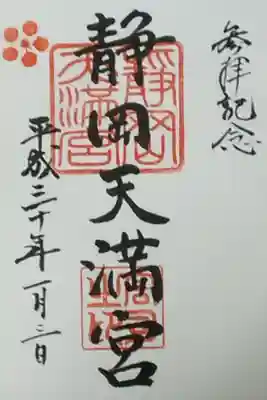 参拝記念
静岡天満宮
平成三十年一月三日
静岡
天満宮